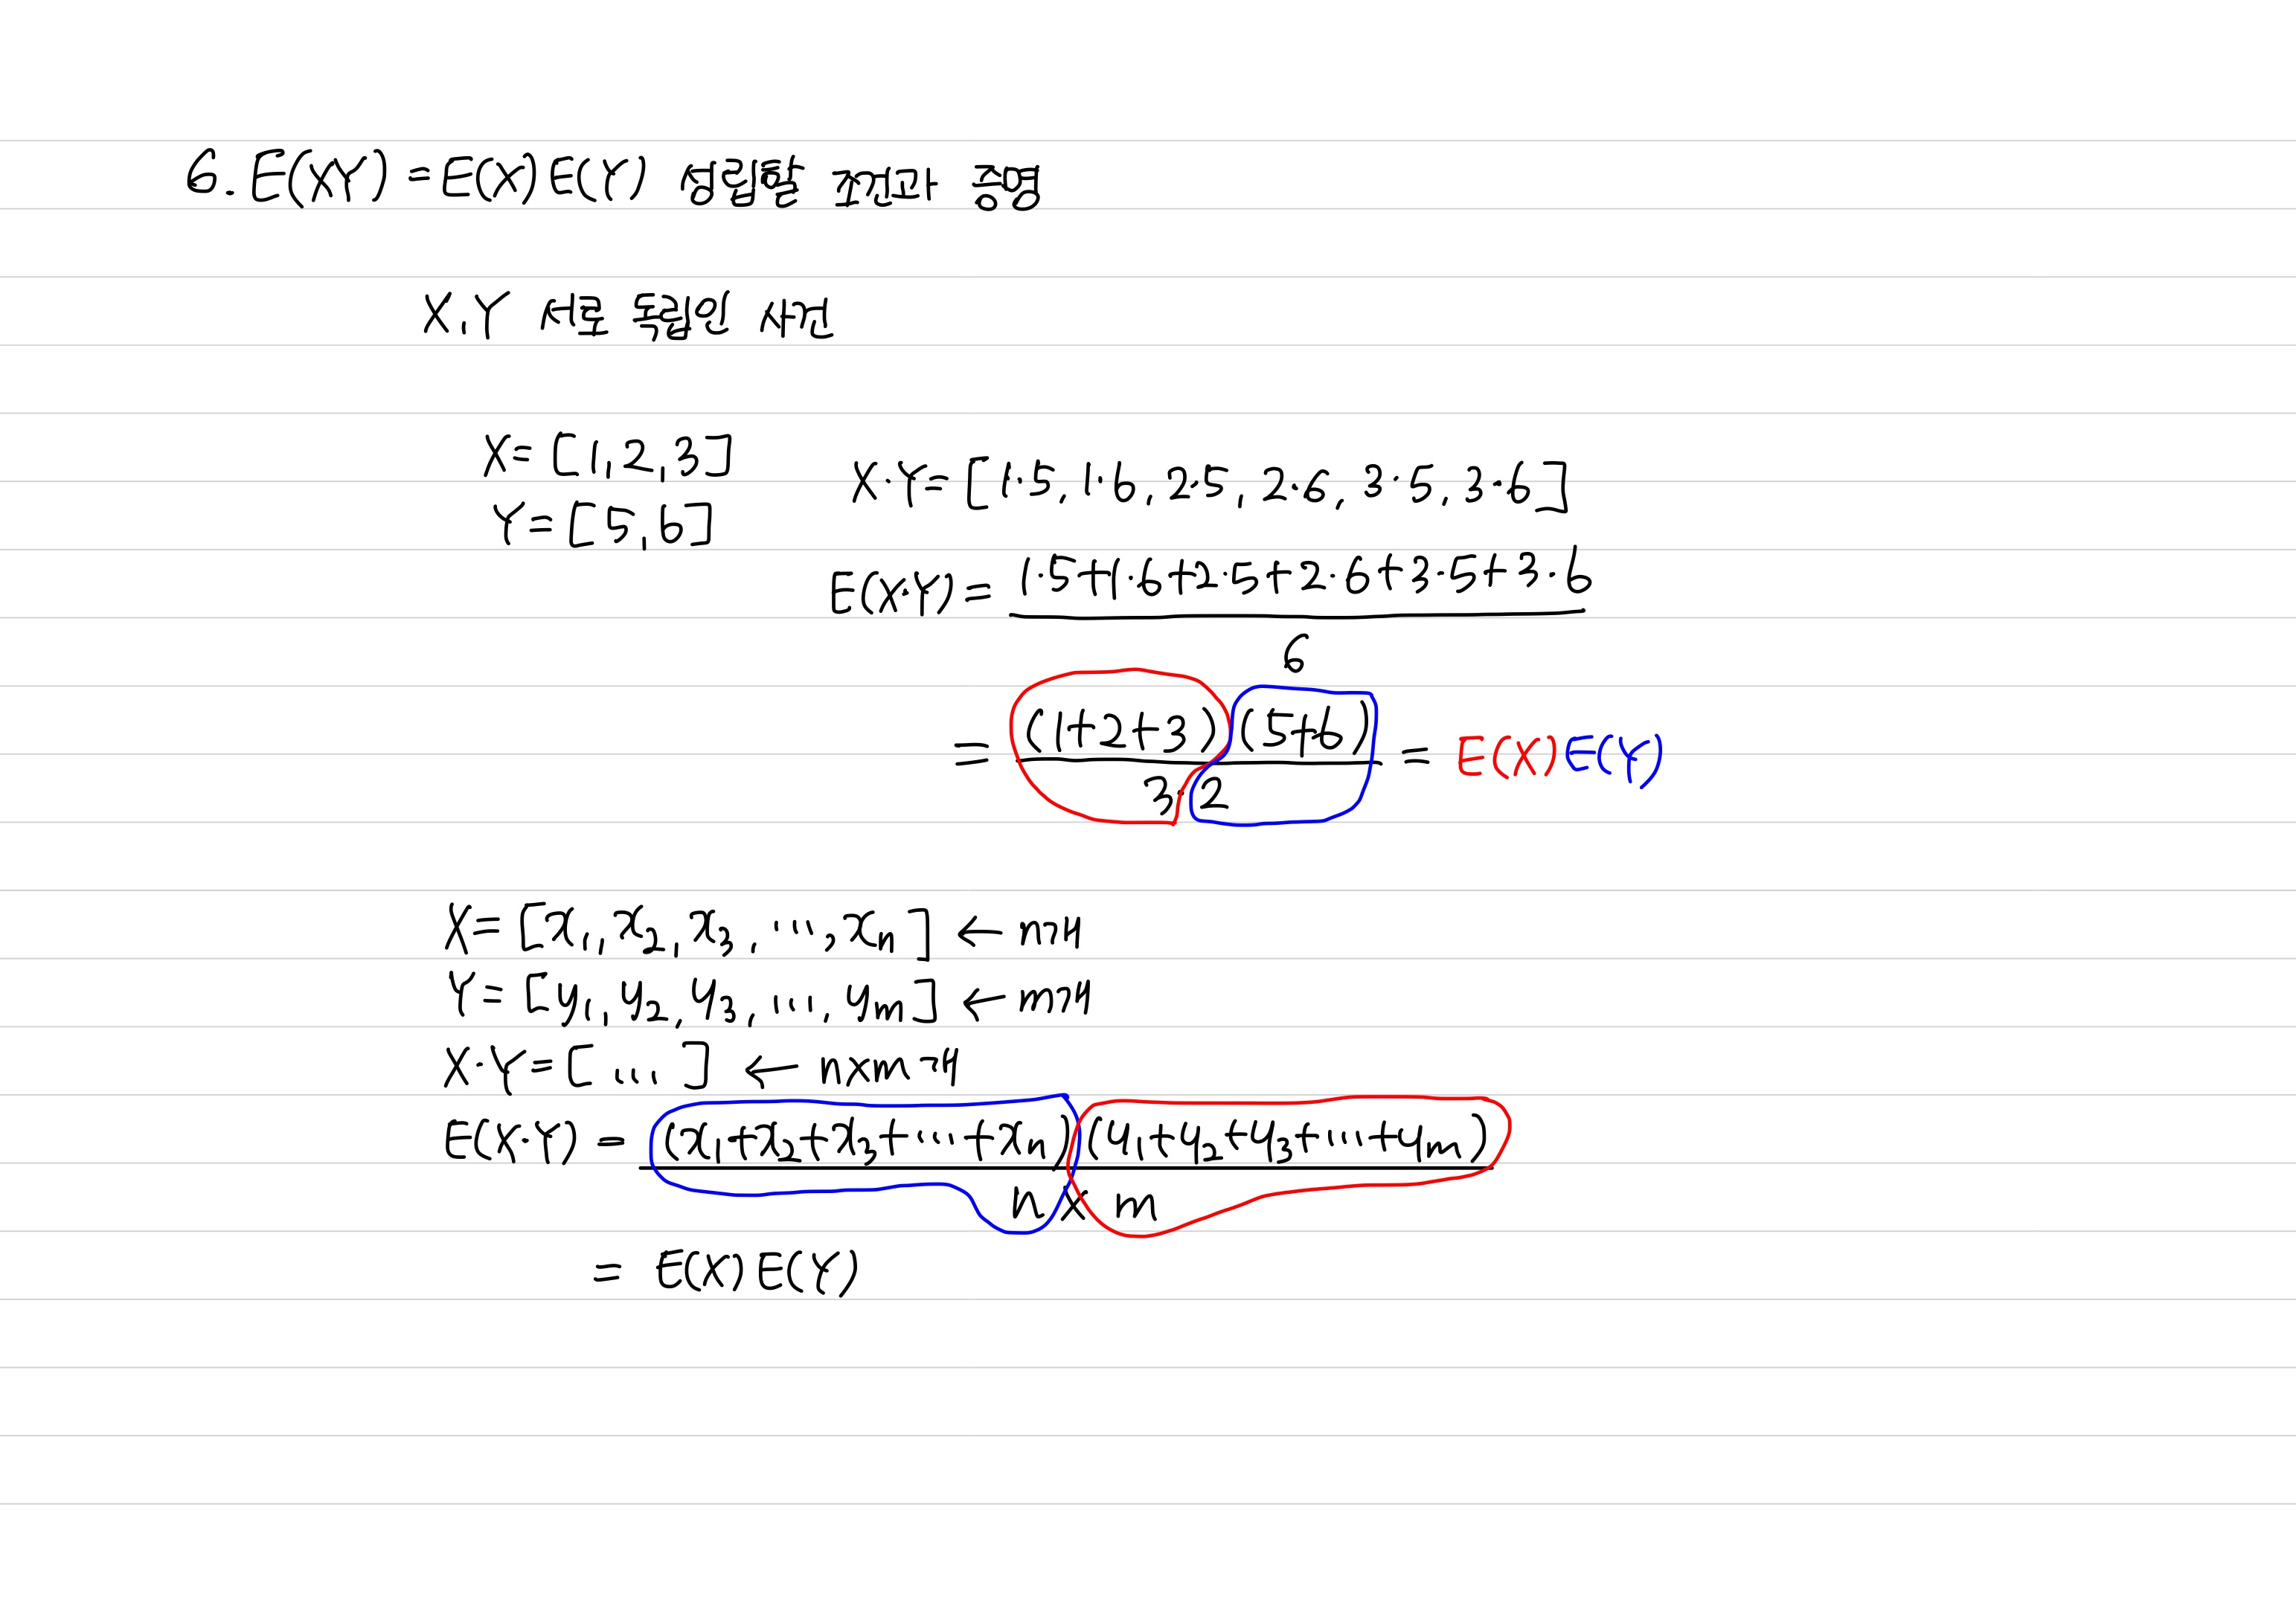 6. E(XY) = E(X)E(Y)성립할 조건과 증명
X, Y 서로 독립인 사건
X = [1, 2, 3]
Y = [5, 6]
X·Y = [1·5, 1·6, 2·5, 2·6, 3·5, 3·6]
E(X·Y) = (1·5+1·6+2·5+2·6+3·5+3·6) / 6
= (1+2+3)(5+6) / 3·2 = E(X)E(Y)
X = [x₁, x₂, x₃, ..., xₙ] ← n개
Y = [y₁, y₂, y₃, ..., yₘ] ← m개
X·Y = [...] ← n×m개
E(X·Y) = (x₁+x₂+x₃+...+xₙ)(y₁+y₂+y₃+...+yₘ) / n × m
= E(X)E(Y)